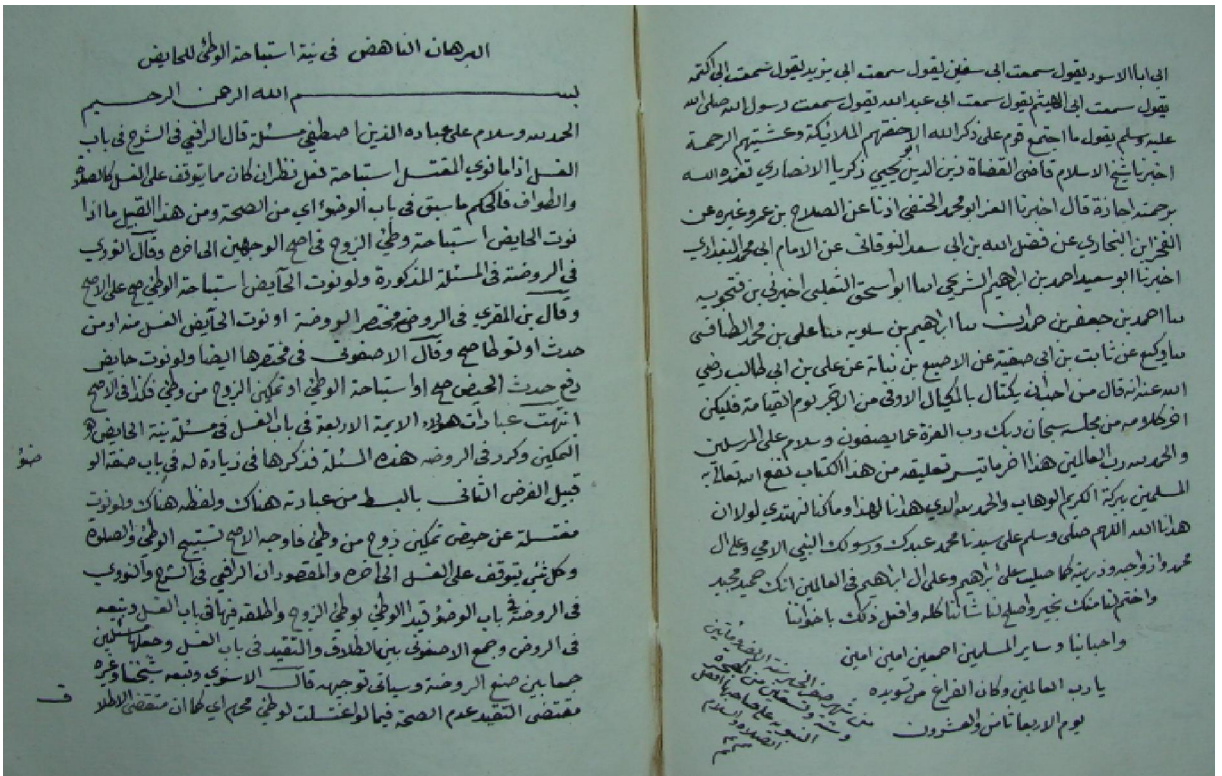 الى اباالاسود يقول سمعت ابى سفين يقول سمعت ابى يزيد يقول سمعت ابى اكتمه
يقول سمعت ابى الهيثم يقول سمعت ابى عبد الله يقول سمعت رسول الله صلى الله
عليه وسلم يقول ما اجتمع قوم على ذكر الله الا حفتهم الملائكة وغشيتهم الرحمة
اخبرنا شيخ الاسلام قاضى القضاة زين الدين ابو يحيى زكريا الانصاري تغمده الله
برحمته اجازة قال اخبرنا العز ابو محمد الحنفى اذنا عن الصلاح بن عمر وغيره عن
الفخر ابن البخاري عن فضل الله بن ابى سعد النوقانى عن الامام ابى محمد البغدادي
اخبرنا ابو سعيد احمد بن ابراهيم الشريحي انبا ابو اسحق الثعلبى اخبرنى بن فتجويه
سا احمد بن جعفر بن حمدان سا ابراهيم بن سلويه سا على بن محمد الطنافسى
سا وكيع عن ثابت بن ابى صفية عن الاصبغ بن نباتة عن على بن ابى طالب رضي
الله عنه انه قال من احب ان يكتال بالمكيال الاوفى من الاجر يوم القيامة فليكن
اخر كلامه من مجلسه سبحان ربك رب العزة عما يصفون وسلام على المرسلين
والحمد لله رب العالمين هذا اخر ما تيسر تعليقه من هذا الكتاب نفع الله تعالى به
المسلمين ببركة الكريم الوهاب والحمد لله الذي هدانا لهذا وما كنا لنهتدي لولا ان
هدانا الله اللهم صلى وسلم على سيدنا محمد عبدك ورسولك النبي الامي وعلى ال
محمد وازواجه وذريته كما صليت على ابراهيم وعلى ال ابراهيم فى العالمين انك حميد مجيد
واختم لنا منك بخير واصلح لنا شاننا كله وافعل ذلك باخواننا
واحبابنا وساير المسلمين اجمعين امين امين
يا رب العالمين وكان الفراغ من تسويده
يوم الاربعا ثامن والعشرون
من شهر صفر الخير سنة
وستة وتسعين من الهجرة
النبويه على صاحبها افضل
الصلاة والسلام
البرهان الناهض فى نية استباحة الوطئ للحايض
بسم الله الرحمن الرحيم
الحمد لله وسلام على عباده الذين اصطفي مسئلة قال الرافعي فى الشرح فى باب
الغسل اذا ما نوي المغتسل استباحة فعل نظر ان كان مما يتوقف على الغسل كالصلاة
والطواف فالحكم ما سبق فى باب الوضؤ اي من الصحة ومن هذا القبيل ما اذا
نوت الحايض استباحة وطئ الزوج فى اصح الوجهين الى اخره وقال النووي
فى الروضة فى المسئلة المذكورة ولو نوت الحايض استباحة الوطئ صح على الاصح
وقال بن المقري فى الروض مختصر الروضة او نوت الحايض الغسل منه او من
حدث او لتوطا صح وقال الاصفونى فى مختصرها ايضا ولو نوت حايض
رفع حدث الحيض صح او استباحة الوطئ او تمكين الزوج من وطئ فكذا فى الاصح
انتهت عبارات هولاء الايمة الاربعة فى باب الغسل فى مسئلة نية الحايض
التمكين وكرر فى الروضه هذه المسئلة فذكرها فى زيادة له فى باب صفة الو
ضؤ
قبيل الفرض الثانى بالبسط من عبارته هناك ولفظه هناك ولو نوت
مغتسلة عن حيض تمكين زوج من وطئ فاوجه الاصح تستبيح الوطئ والصلوة
وكل شئ يتوقف على الغسل الى اخره والمقصود ان الرافعي فى الشرح والنووي
فى الروضة فى باب الوضؤ قيد الوطئ بوطئ الزوج واطلقه فيها فى باب الغسل وتبعه
فى الروض وجمع الاصفونى بين الاطلاق والتقييد فى باب الغسل وجعلها مسئلتين
جمعا بين صنع الروضة وسياتى توجيهه قال الاسنوي وتبعه شيخنا وغيره
مقتضى التقييد عدم الصحة فيما لو اغتسلت لوطئ محرم اي كما ان مقتضى الاطلا
ق